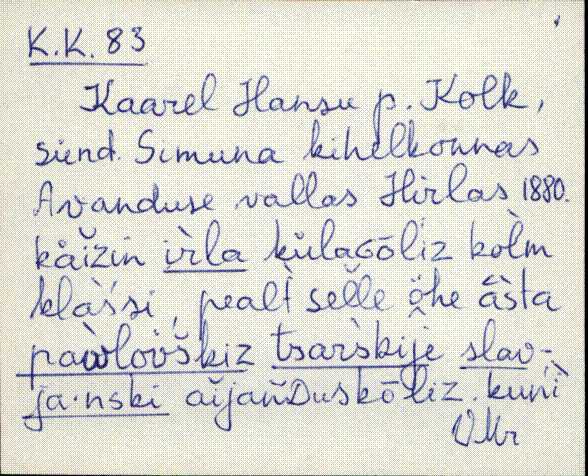 K.K. 83
Kaarel Hansu p. Kolk,
sünd. Simuna kihelkonnas
Avanduse vallas Hirlas 1880.
kåìžin ìrla kŭlaGōliz kòlm
klàsśi, pealt̀ sell̆e ŏ̭he āsta
pàwlovškiz tsaŕskije slav-
ja·nski aĭjan̆Duskōliz. kuǹi
VMr